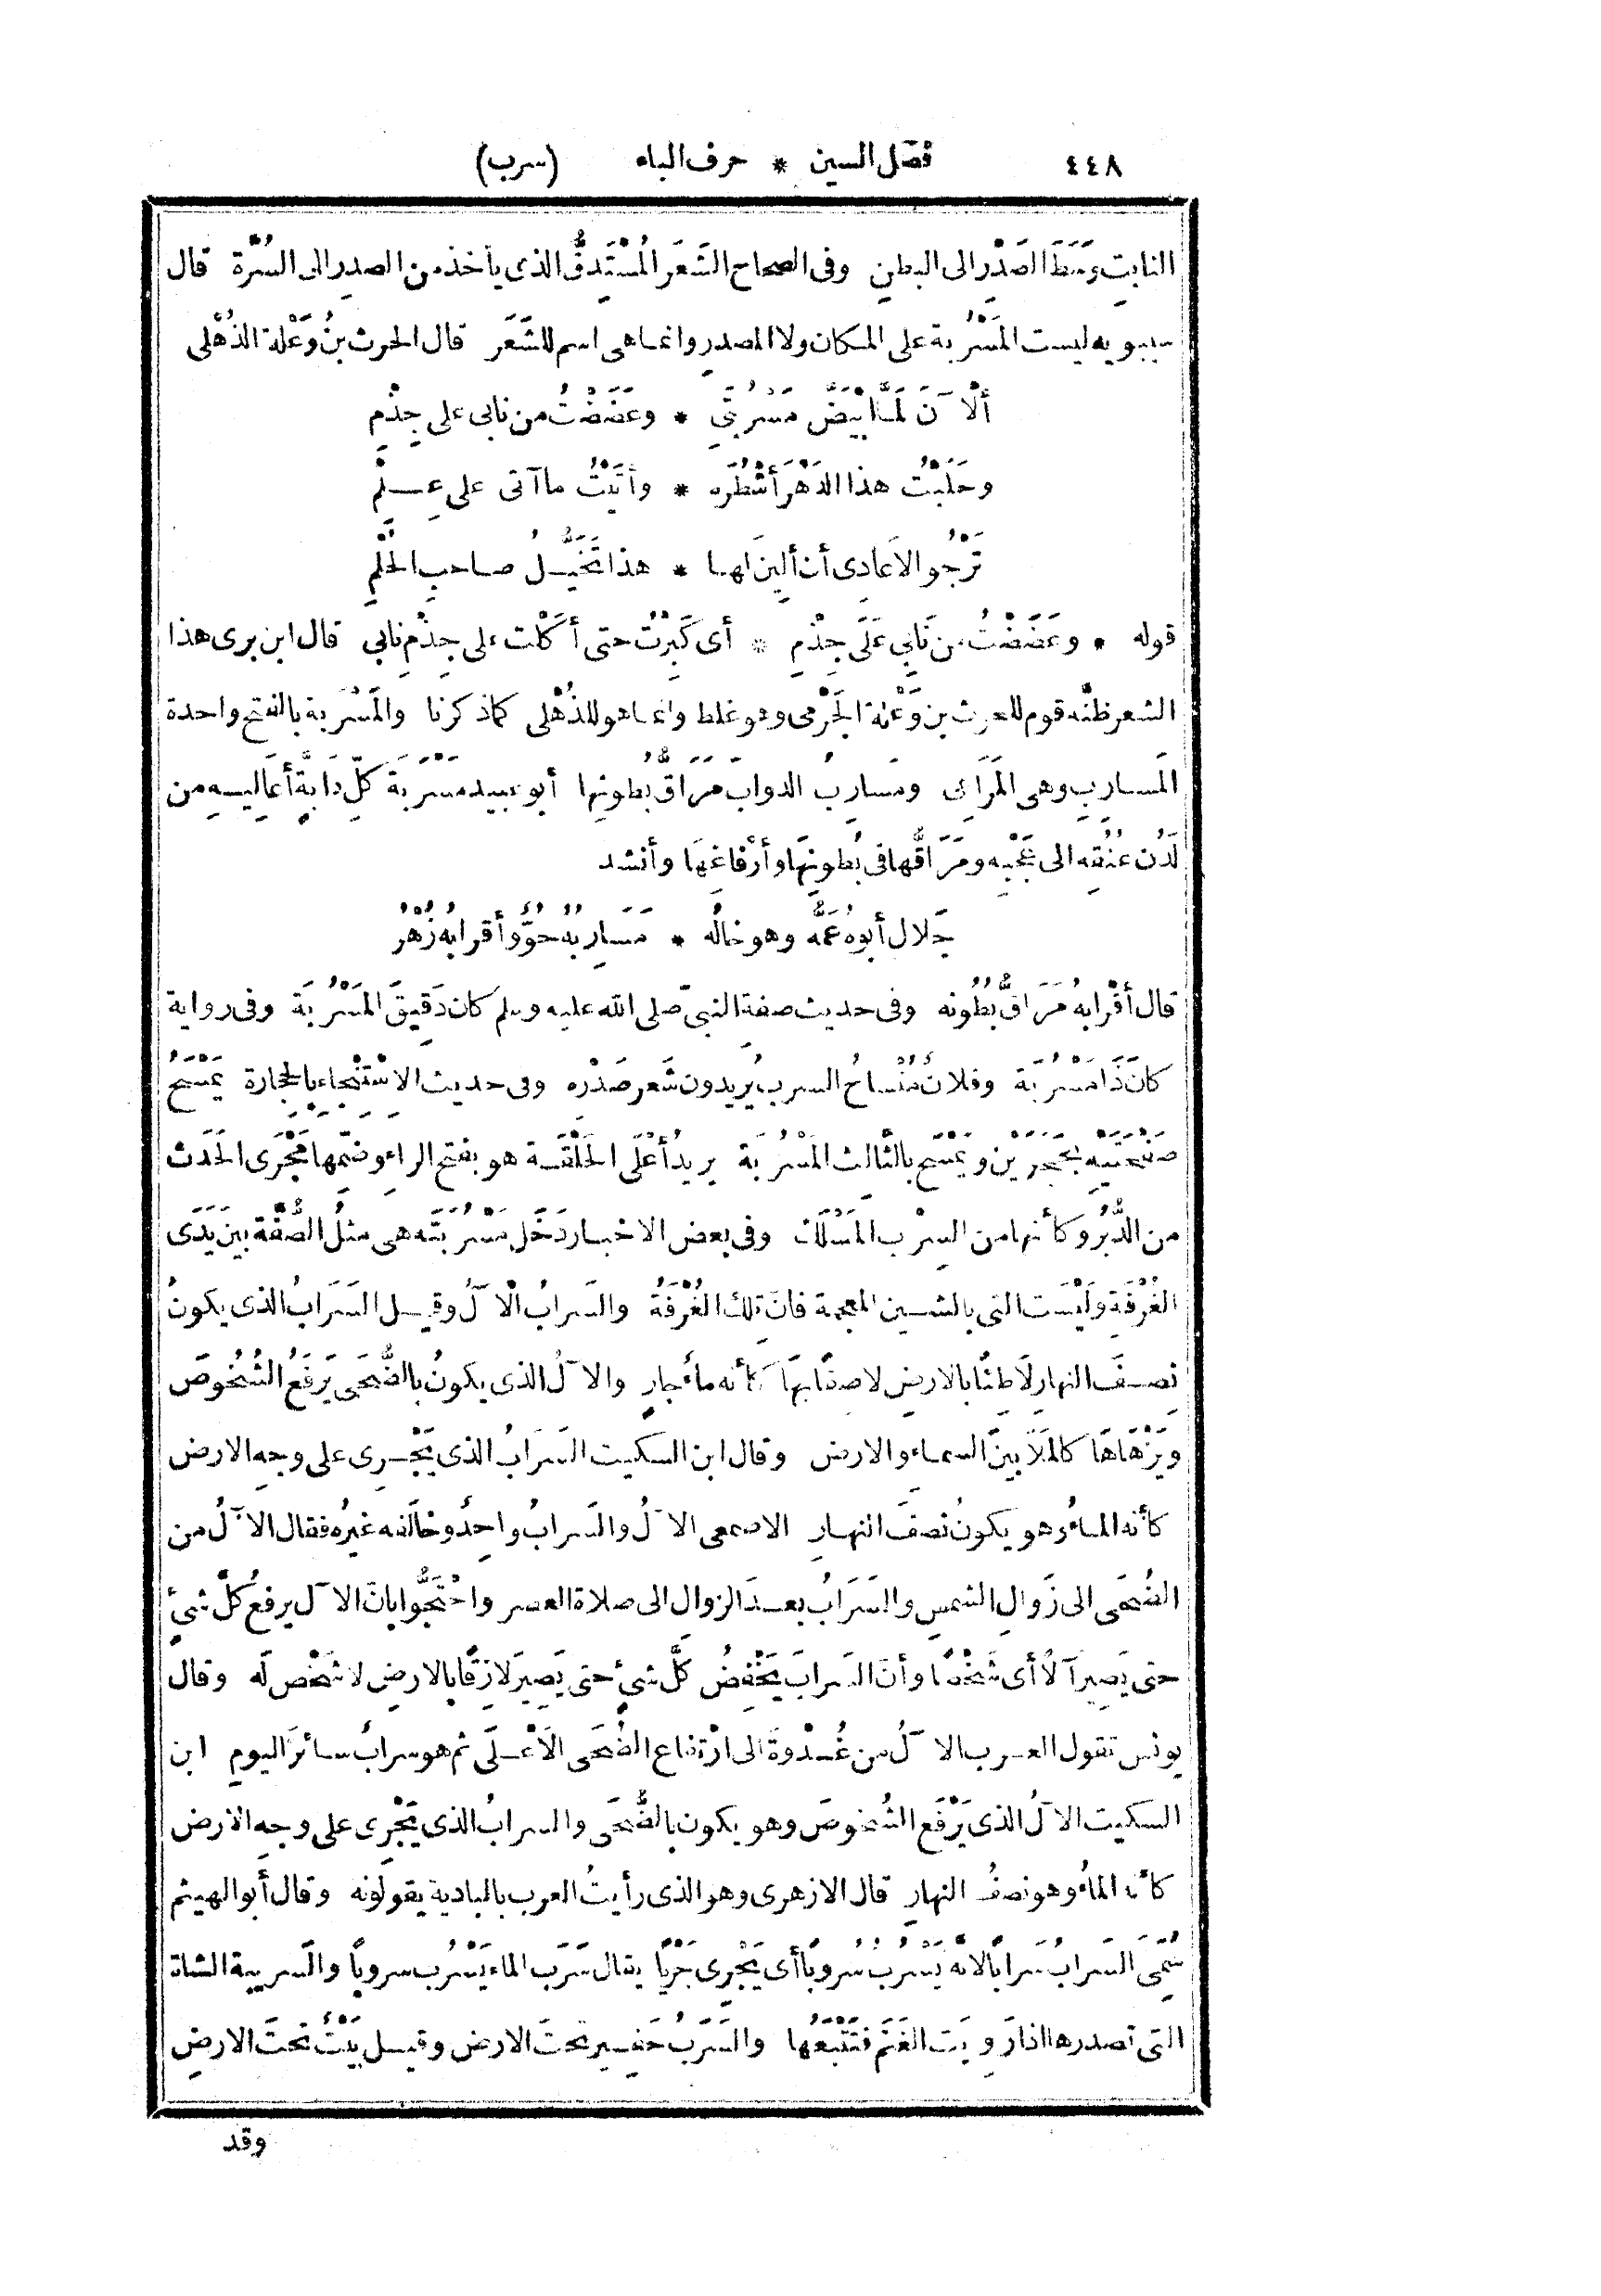 ٤٤٨ فصل السين * حرف الباء (سرب)
النابِتِ وَسَطَ الصَدْرِ الى البطنِ وفى الصحاح الشَعَر المُسْتَدِقُّ الذى يأخذ من الصدرِ الى السُرَّة قال
سيبويه ليست المَسْرُبة على المكان ولا المصدرِ وانما هى اسم للشَّعَر قال الحرث بنُ وَعْلة الذُهْلى
أَلْآنَ لَمَّا ابْيَضَّ مَسْرُبَتِى * وعَضَضْتُ من نابى على جِذْمِ
وحَلَبْتُ هذا الدَهْرَ أَشْطُرَه * وأَتَيْتُ ما آتى على عِلْمِ
تَرْجُو الاَعادِى أن أَلِينَ لها * هذا تَخَيُّلُ صاحبِ الحُلْمِ
قوله * وعَضَضْتُ من نَابِي عَلَى جِذْمِ * أى كَبِرْتُ حتى أَكَلْت على جِذْمِ نابى قال ابن برى هذا
الشعر ظنَّه قوم للحرث بن وَعْلة الجَرْمى وهو غلط وانما هو للذُهْلى كما ذكرنا والمَسْرَبة بالفتح واحدة
المَسارِبِ وهى المَرَاعى ومَسارِبُ الدوابِّ مَرَاقُّ بُطونِها أبو عبيد مَسْرَبَة كلِّ دَابةٍ أَعَالِيهِ من
لَدُن عُنُقِه الى عَجْبِه ومَرَاقُّها فى بُطونِها وأَرْفاغِها وأنشد
جَلال أَبوهُ عَمُّه وهو خالُه * مَسَارِبُهُ حُوٌّ وأَقرابُه زُهْرُ
قال أَقْرابهُ مَرَاقُّ بُطُونه وفى حديث صفة النبىّ صلى الله عليه وسلم كان دَقِيقَ المَسْرُبَة وفى رواية
كانَ ذَا مَسْرُبَة وفلانٌ مُنْساحُ السربِ يُريدون شَعر صَدْرِه وفى حديث الاسْتِنْجاءِ بالحجارة يَمْسَحُ
صَفْحَتَيْهِ بحَجَرَيْن ويَمْسَح بالثالثِ المَسْرُبَة يريدُ أَعْلَى الحَلْقَة هو بفتح الراءِ وضمِّها مَجْرَى الحَدَث
من الدُّبُر وكأنها من السِرْب المَسْلَك وفى بعض الاخبار دَخَل مَسْرُبَتَه هى مثلُ الصُّفَّة بين يَدَىِ
الغُرْفَةِ ولَيْسَت التى بالشين المعجمة فانَّ تِلك الغُرْفَةُ والسَرابُ الْآلُ وقيل السَرَابُ الذى يكونُ
نِصفَ النهارِ لَاطِئًا بالارضِ لاصقًا بها كأنه ماءٌ جارٍ والآلُ الذى يكونُ بالضُّحَى يَرفَعُ الشُخُوصَ
ويَزْهَاهَا كالمَلَا بينَ السماءِ والارض وقال ابن السكيت السَرَابُ الذى يَجْرِى على وجهِ الارض
كأنه الماءُ وهو يكونُ نصفَ النهارِ الاصمعى الآلُ والسَرابُ واحِدٌ وخالَفه غيرُه فقال الآلُ من
الضُحَى الى زَوالِ الشمسِ والسَرَابُ بعدَ الزوالِ الى صلاة العصر واحْتَجُّوا بانَّ الآلَ يرفعُ كلَّ شئٍ
حتى يَصِيرَ آلًا أى شَخْصًا وأنَّ السَرابَ يَخْفِضُ كلَّ شئٍ حتى يَصِيرَ لازِقًا بالارضِ لا شَخْصَ له وقال
يونس تقول العرب الآلُ من غُدْوة الى ارْتفاع الضُحَى الَأعْلَى ثم هو سرابٌ سائرَ اليومِ ابن
السكيت الآلُ الذى يَرْفَع الشُخوصَ وهو يكون بالضُّحَى والسرابُ الذى يَجْرِى على وجهِ الارض
كأنه الماءُ وهو نصفُ النهارِ قال الازهرى وهو الذى رأيتُ العرب بالبادية يقولونه وقال أبو الهيثم
سُمِّىَ السَرابُ سَرابًا لانه يَسْرُبُ سُروبًا أى يَجْرِى جَرْيًا يقال سَرَب الماء يَسْرُب سروبًا والسَريبة الشاة
التى تصدرها اذا رَوِيَت الغَنَم فتَتْبَعُها والسَرَبُ حَفِير تحتَ الارض وقيل بَيْتٌ تحتَ الارضِ
وقد